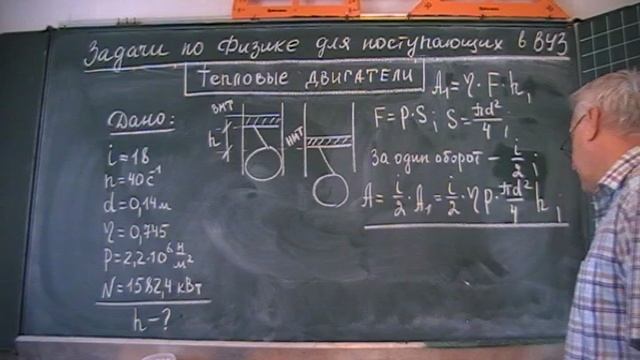 Задачи по физике для поступающих в ВУЗ
тепловые двигатели
Дано:
i = 18
n = 40 c⁻¹
d = 0,14 м
η = 0,745
P = 2,2·10⁶ н/м²
N = 1582,4 кВт
h – ?
ВМТ
h
НМТ
A₁ = η·F·h;
F = P·S; S = πd²/4;
За один оборот – i/2;
A = i/2·A₁ = i/2·ηp·πd²/4 h;